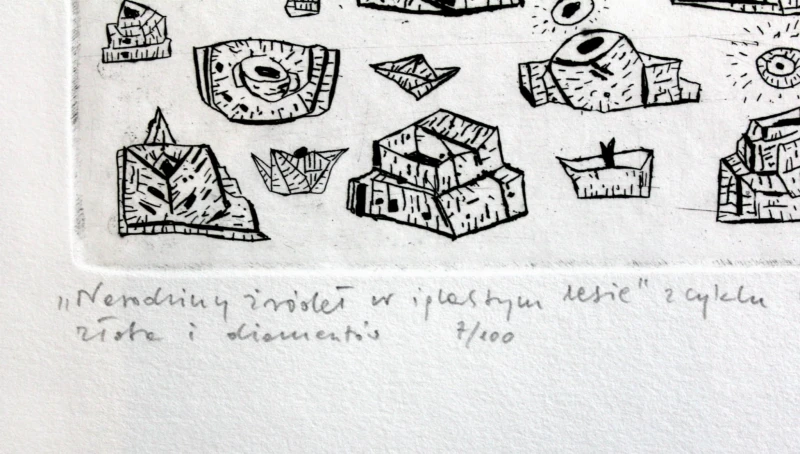 „Narodziny źródeł w iglastym lesie" z cyklu
złota i diamentów 7/100